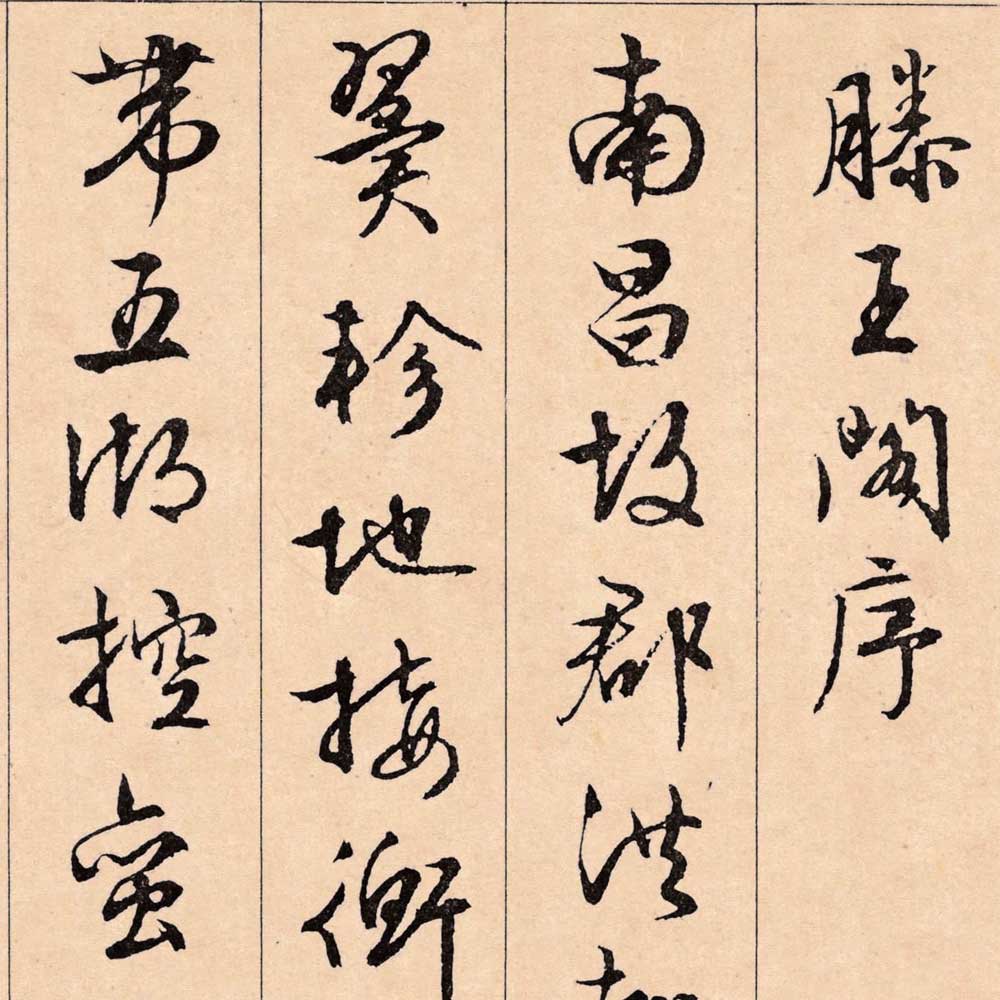 滕王阁序
南昌故郡洪
翼轸地接衡
带五湖控蛮